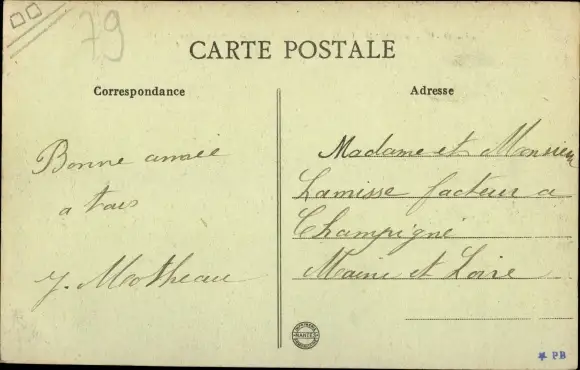 79
CARTE POSTALE
Correspondance
Adresse
Bonne année
a tous
J. Motheau
Madame et Monsieur
Lamisse facteur a
Champigné
Maine et Loire
NANTES
PB